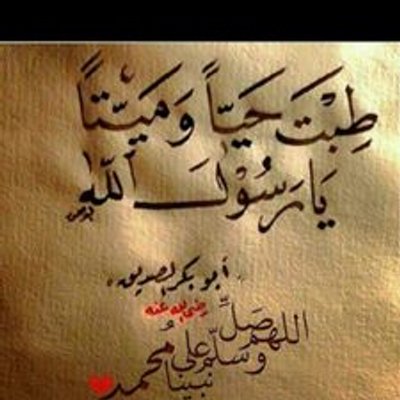 طِبْتَ حَيّاً وَمَيْتاً
يَا رَسُوْلَ اللّٰه
" أبو بكر الصديق "
رضي الله عنه
اللهم صَلِّ
وسلّم على
نبينا محمد